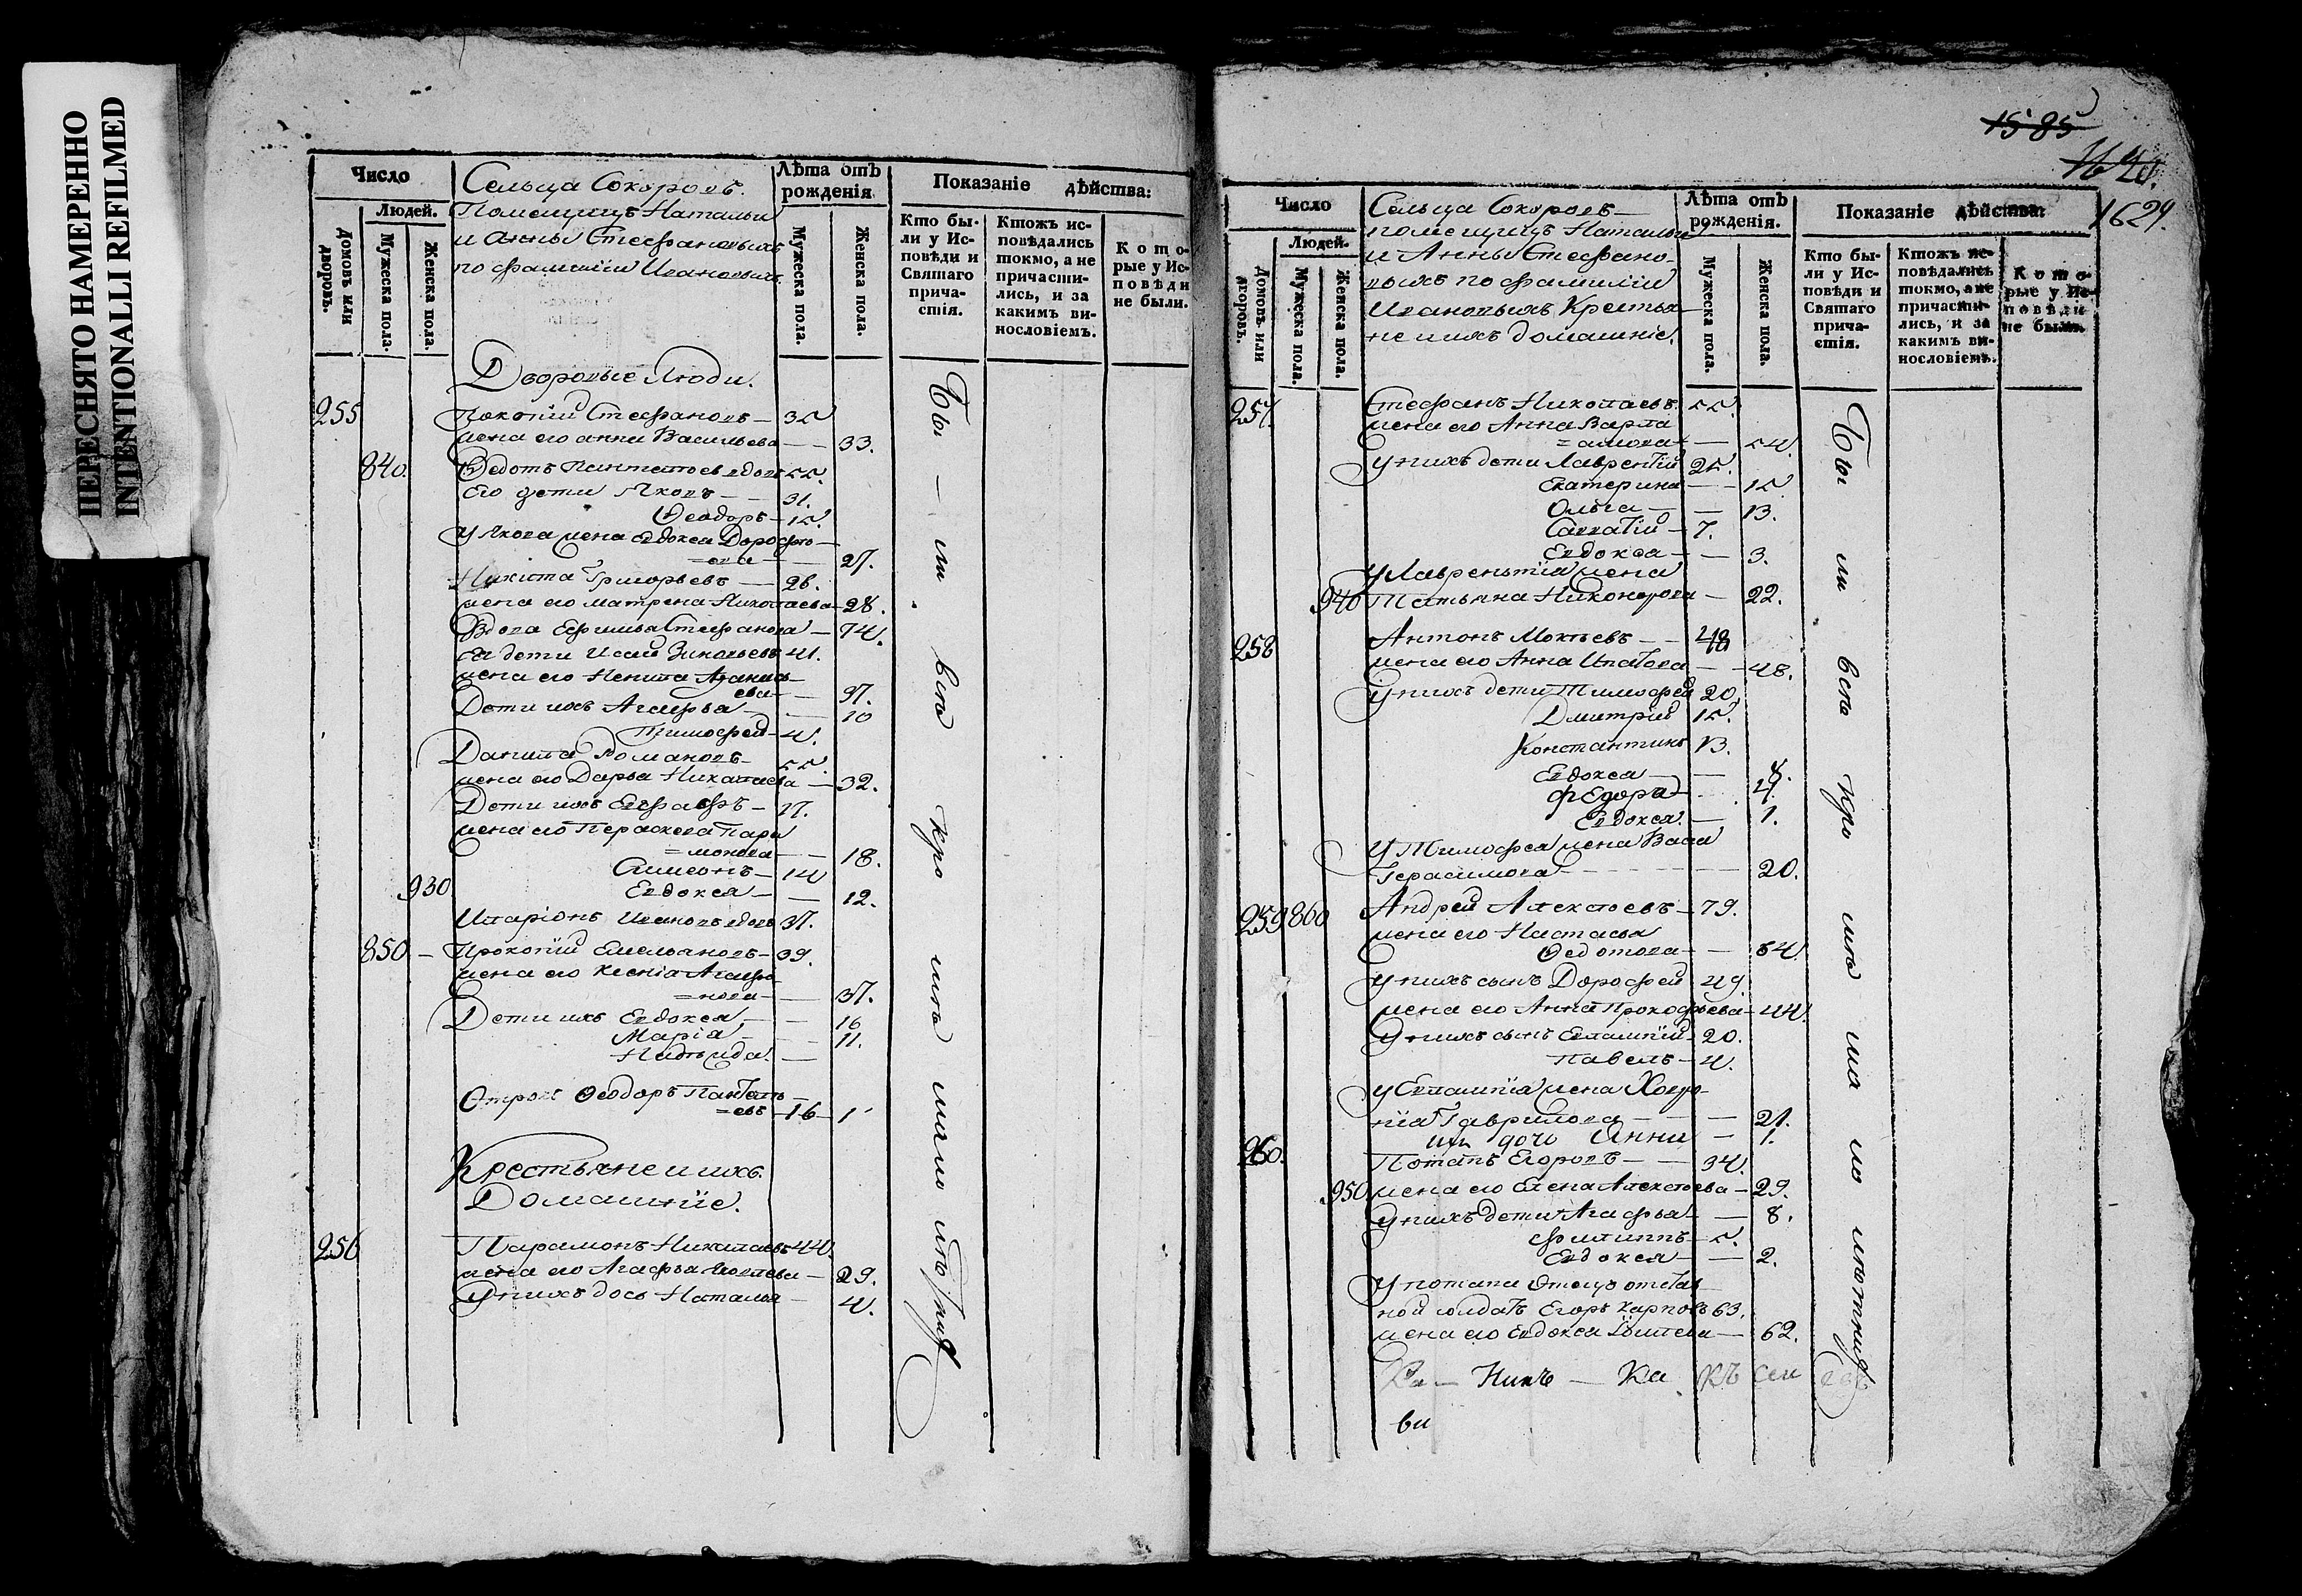 ПЕРЕСНЯТО НАМЕРЕННО
INTENTIONALLI REFILMED
Число
Людей.
Домовъ или дворовъ.
Мужеска пола.
Женска пола.
Сельца Сокоровъ.
Помещицъ Натальи
и Анны Стефановыхъ
по фамилiи Ивановыхъ
Лѣта отъ рожденія
Мужеска пола.
Женска пола.
Показаніе дѣйства:
Кто бы-
ли у Ис-
повѣди и
Святаго
прича-
стія.
Ктожъ ис-
повѣдались
токмо, а не
причасти-
лись, и за
какимъ ви-
нословіемъ.
Кото-
рые у Ис-
повѣди
не были.
Дворовые Люди.
255 Стефановъ — 35
жена его анна Васильева — 33.
840. Ѳедотъ вдовъ 55.
Его дети Яковъ — 31.
Ѳеодоръ — 15.
У Якова жена Евдокса Дорофее
=ва — 27.
Никита Григорьевъ — 26.
жена его матрена Николаева — 28.
Вдова Стефанова — 74.
Ея дети 41.
жена его
ева — 37.
Дети ихъ Агафья — 10
Тимофей — 4.
Данила Романовъ — 55.
жена его Дарья Николаева — 32.
Дети ихъ Евграфъ — 17.
жена его Параскева Пара
=монова — 18.
Симеонъ — 14
930 Евдокса — 12.
Иларіонъ Ивановъ вдовъ 37.
850 — Прокопій Емельяновъ — 39.
жена его Ксенія Агафо
=нова — 37.
Дети ихъ Евдокса — 16
Марія — 11.
Отрокъ Ѳеодоръ Пантеле
=евъ — 16 — 1
Крестьяне и ихъ
Домашніе.
256 Парамонъ Николаевъ 44.
жена его Агафья — 29.
У нихъ дочь Наталья — 4.
Бы — ли всѣ кро мѣ мало лѣтних
1585
1620.
1629.
Число
Людей.
Домовъ или дворовъ.
Мужеска пола.
Женска пола.
Сельца Сокоровъ —
помещицъ Натальи
и Анны Стефано-
выхъ по фамиліи
Ивановыхъ Крестья
не и ихъ домашніе.
Лѣта отъ рожденія.
Мужеска пола.
Женска пола.
Показаніе дѣйства:
Кто бы-
ли у Ис-
повѣди и
Святаго
прича-
стія.
Ктожъ ис-
повѣдались
токмо, а не
причасти-
лись, и за
какимъ ви-
нословіемъ.
Кото-
рые у Ис-
повѣди
не были.
257. Стефанъ Николаевъ 55.
жена его Анна Варла
=амова — 54.
У нихъ дети Лаврентій 25.
Екатерина — 15.
Ольга — 13.
Савватій — 7.
Евдокса — 3.
У Лаврентія жена
940 Татьяна Никонорова — 22.
258 Антонъ Мокѣевъ — 48
жена его Анна Ипатова — 48.
У нихъ дети Тимофей 20.
Дмитрій 15.
Константинъ 13.
Евдокса — 8.
Федора — 4.
Евдокса. — 1.
У Тимофея жена Васа
Герасимова — 20.
259 860 Андрей Алексеевъ — 79.
жена его Настасья
Ѳедотова — 64.
У нихъ сынъ Дорофей 49
жена его Анна Прокофьева — 44.
У нихъ сынъ Евлампій 20.
Павелъ — 4.
У Евлампія жена Хевро-
нія Гаврилова — 21.
ихъ дочь Анна — 1.
260. Потапъ Егоровъ — 34.
950 жена его Елена Алексеева — 29.
У нихъ дети Агафья — 8.
Филиппъ — 5.
Евдокся — 2.
У потапа отецъ отстав
ной солдатъ Егоръ Карповъ 63.
жена его Евдокса — 62.
Бы ли всѣ кро мѣ ма ло лѣтних
Ка — Никъ — Ка къ сеи
ви